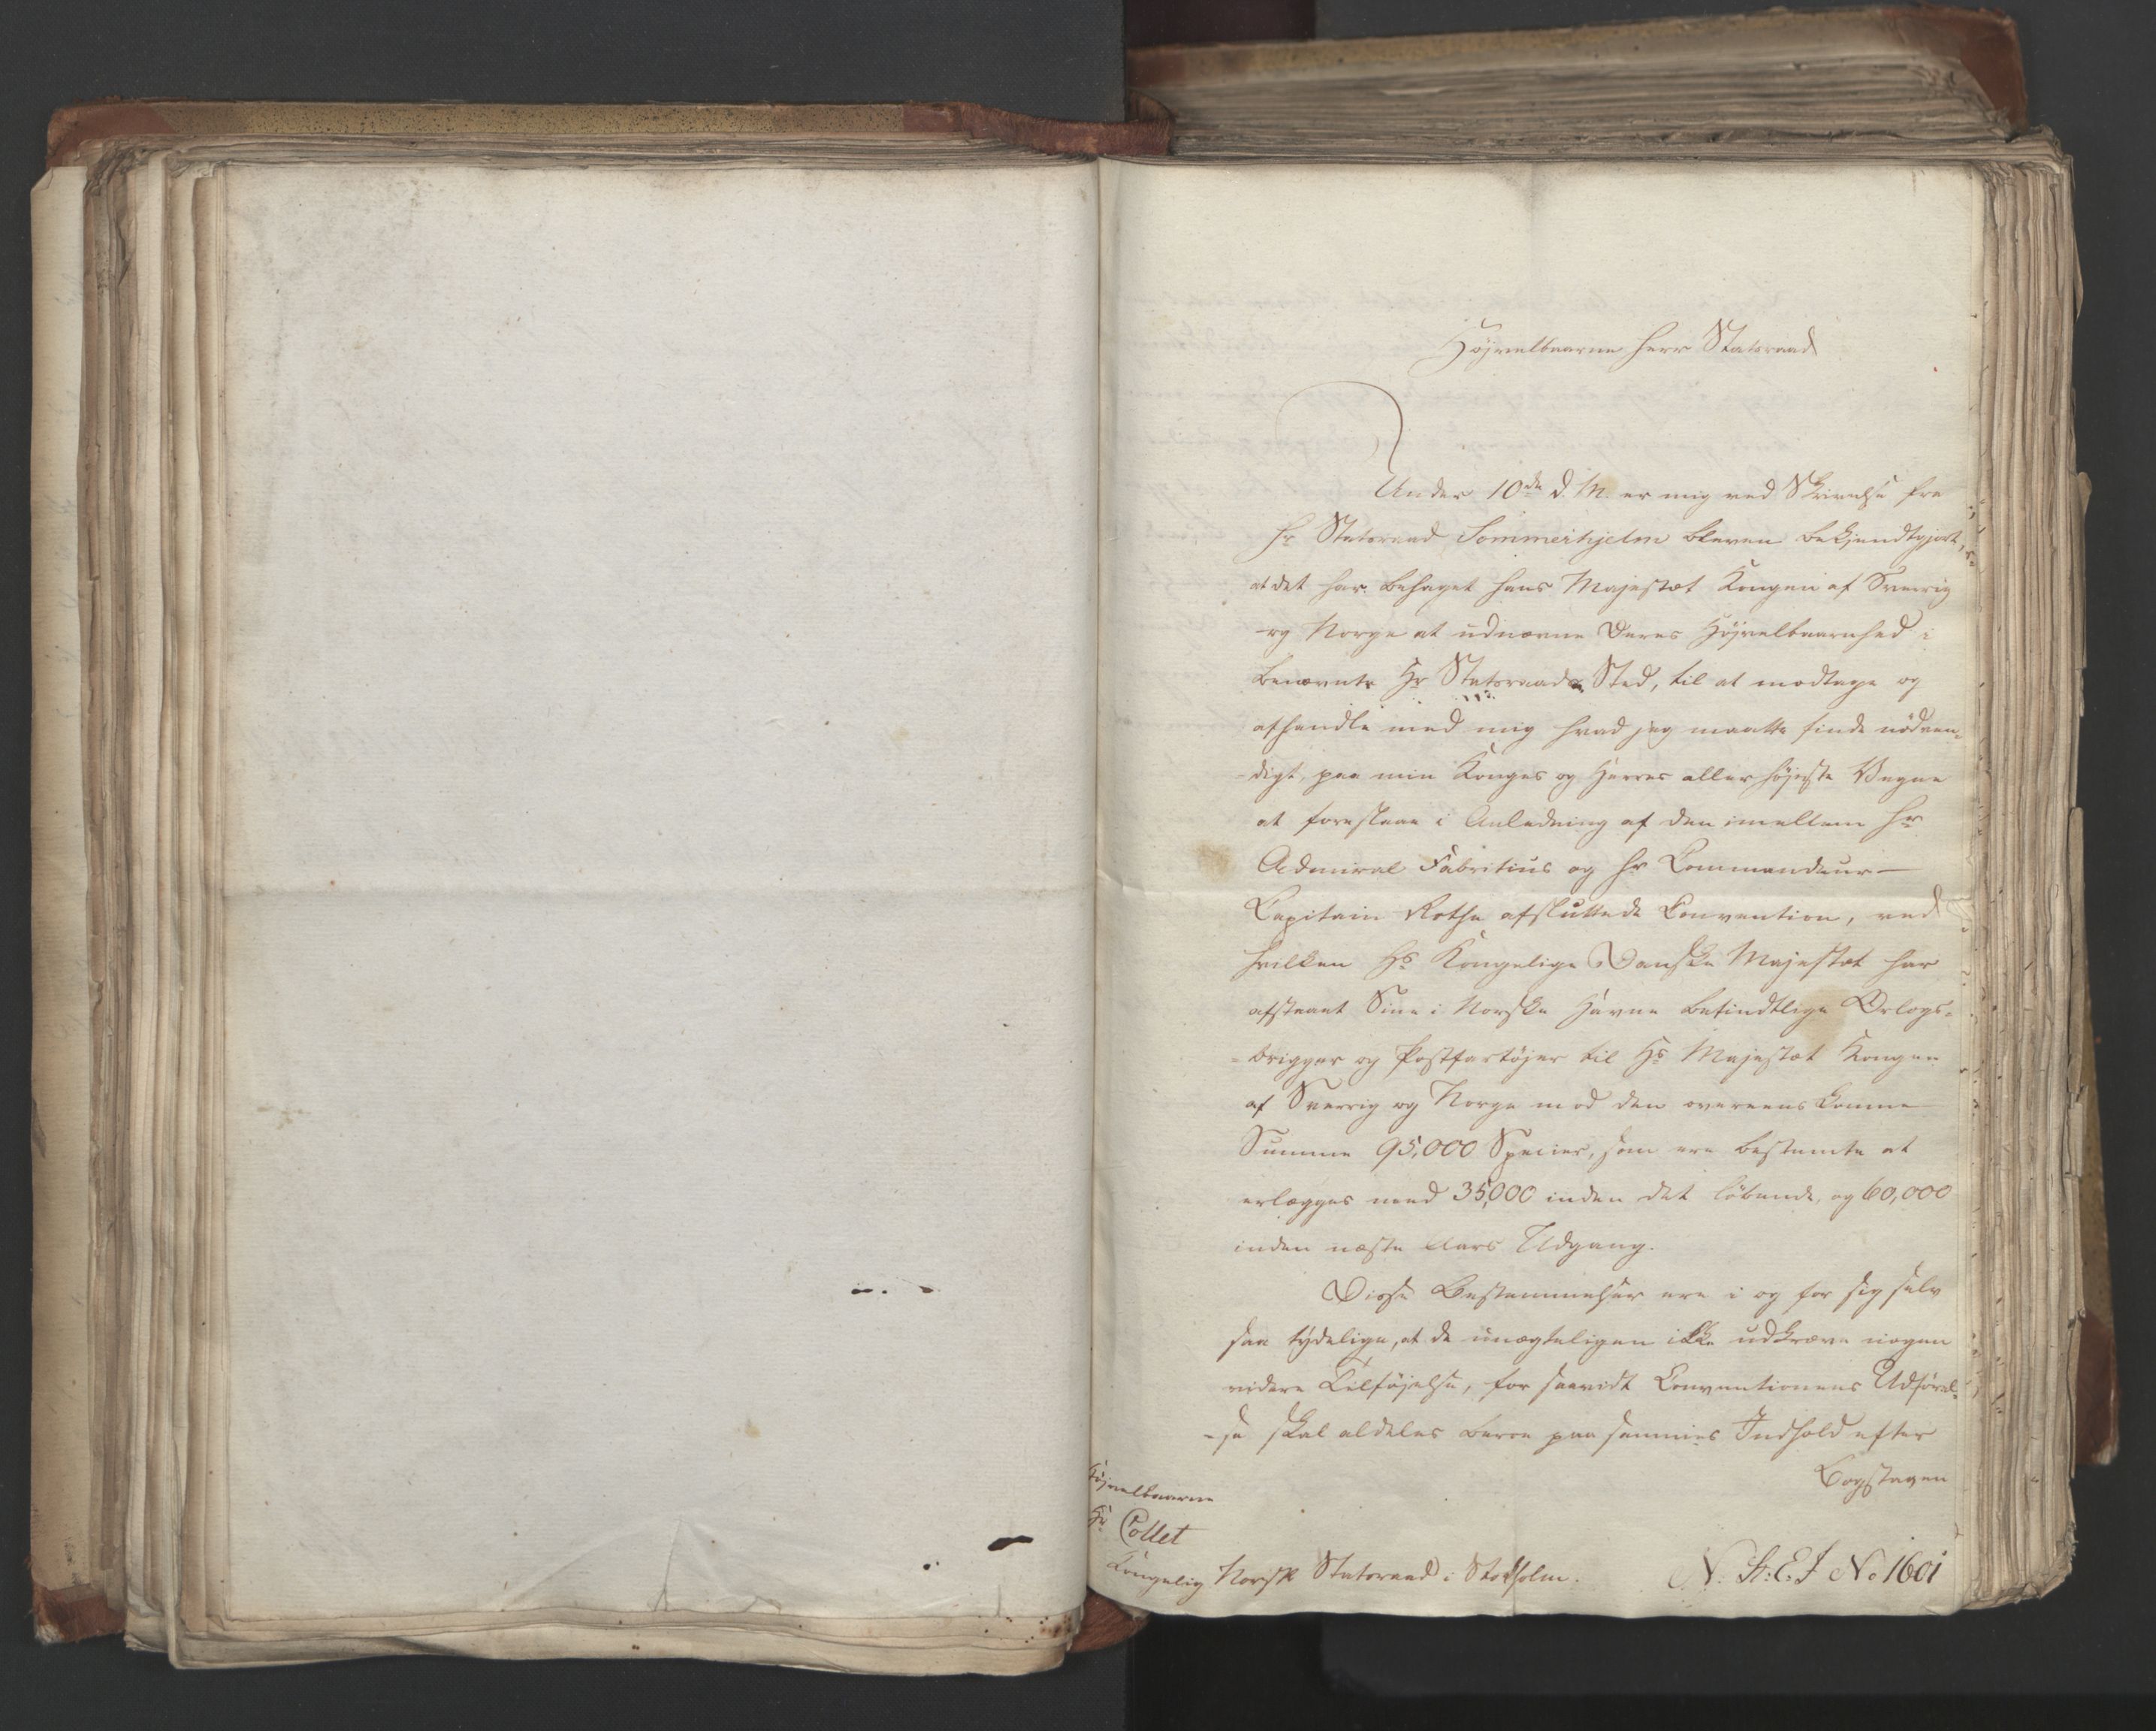 Højvelbaarne Herr Statsraad
Under 10de d. M. er mig ved Skrivelse fra
Hr Statsraad Sommerhjelm bleven bekjendtgjort,
at det har behaget Hans Majestæt Kongen af Sverrig
og Norge at udnævne Deres Højvelbaarnhed i
benævnte Hr Statsraads Sted, til at modtage og
afhandle med mig hvad jeg maatte finde nödven-
-digt, paa min Konges og Herres allerhöjeste Vegne
at foreslaae i Anledning af den imellem Hr
Admiral Fabritius og Hr Commandeur-
Capitain Rothe afsluttede Convention, ved
hvilken Hs Kongelige Danske Majestæt har
afstaaet Sine i Norske Havne befindtlige Orlogs-
-brigger og Postfartøjer til Hs Majestæt Kongen
af Sverrig og Norge mod den overeenskomne
Summe 95,000 Species, som ere bestemte at
erlægges med 35,000 inden det löbende, og 60,000
inden næste Aars Udgang.
Disse Bestemmelser ere i og for sig selv
saa tydelige, at de unægteligen ikke udkræve nogen
videre Tilföjelse, for saavidt Conventionens Udförel-
-se skal aldeles beroe paa sammes Indhold efter
Bogstaven
Højvelbaarne
Hr Collet
Kongelig Norsk Statsraad i Stockholm.
N. St: E. J No 1601